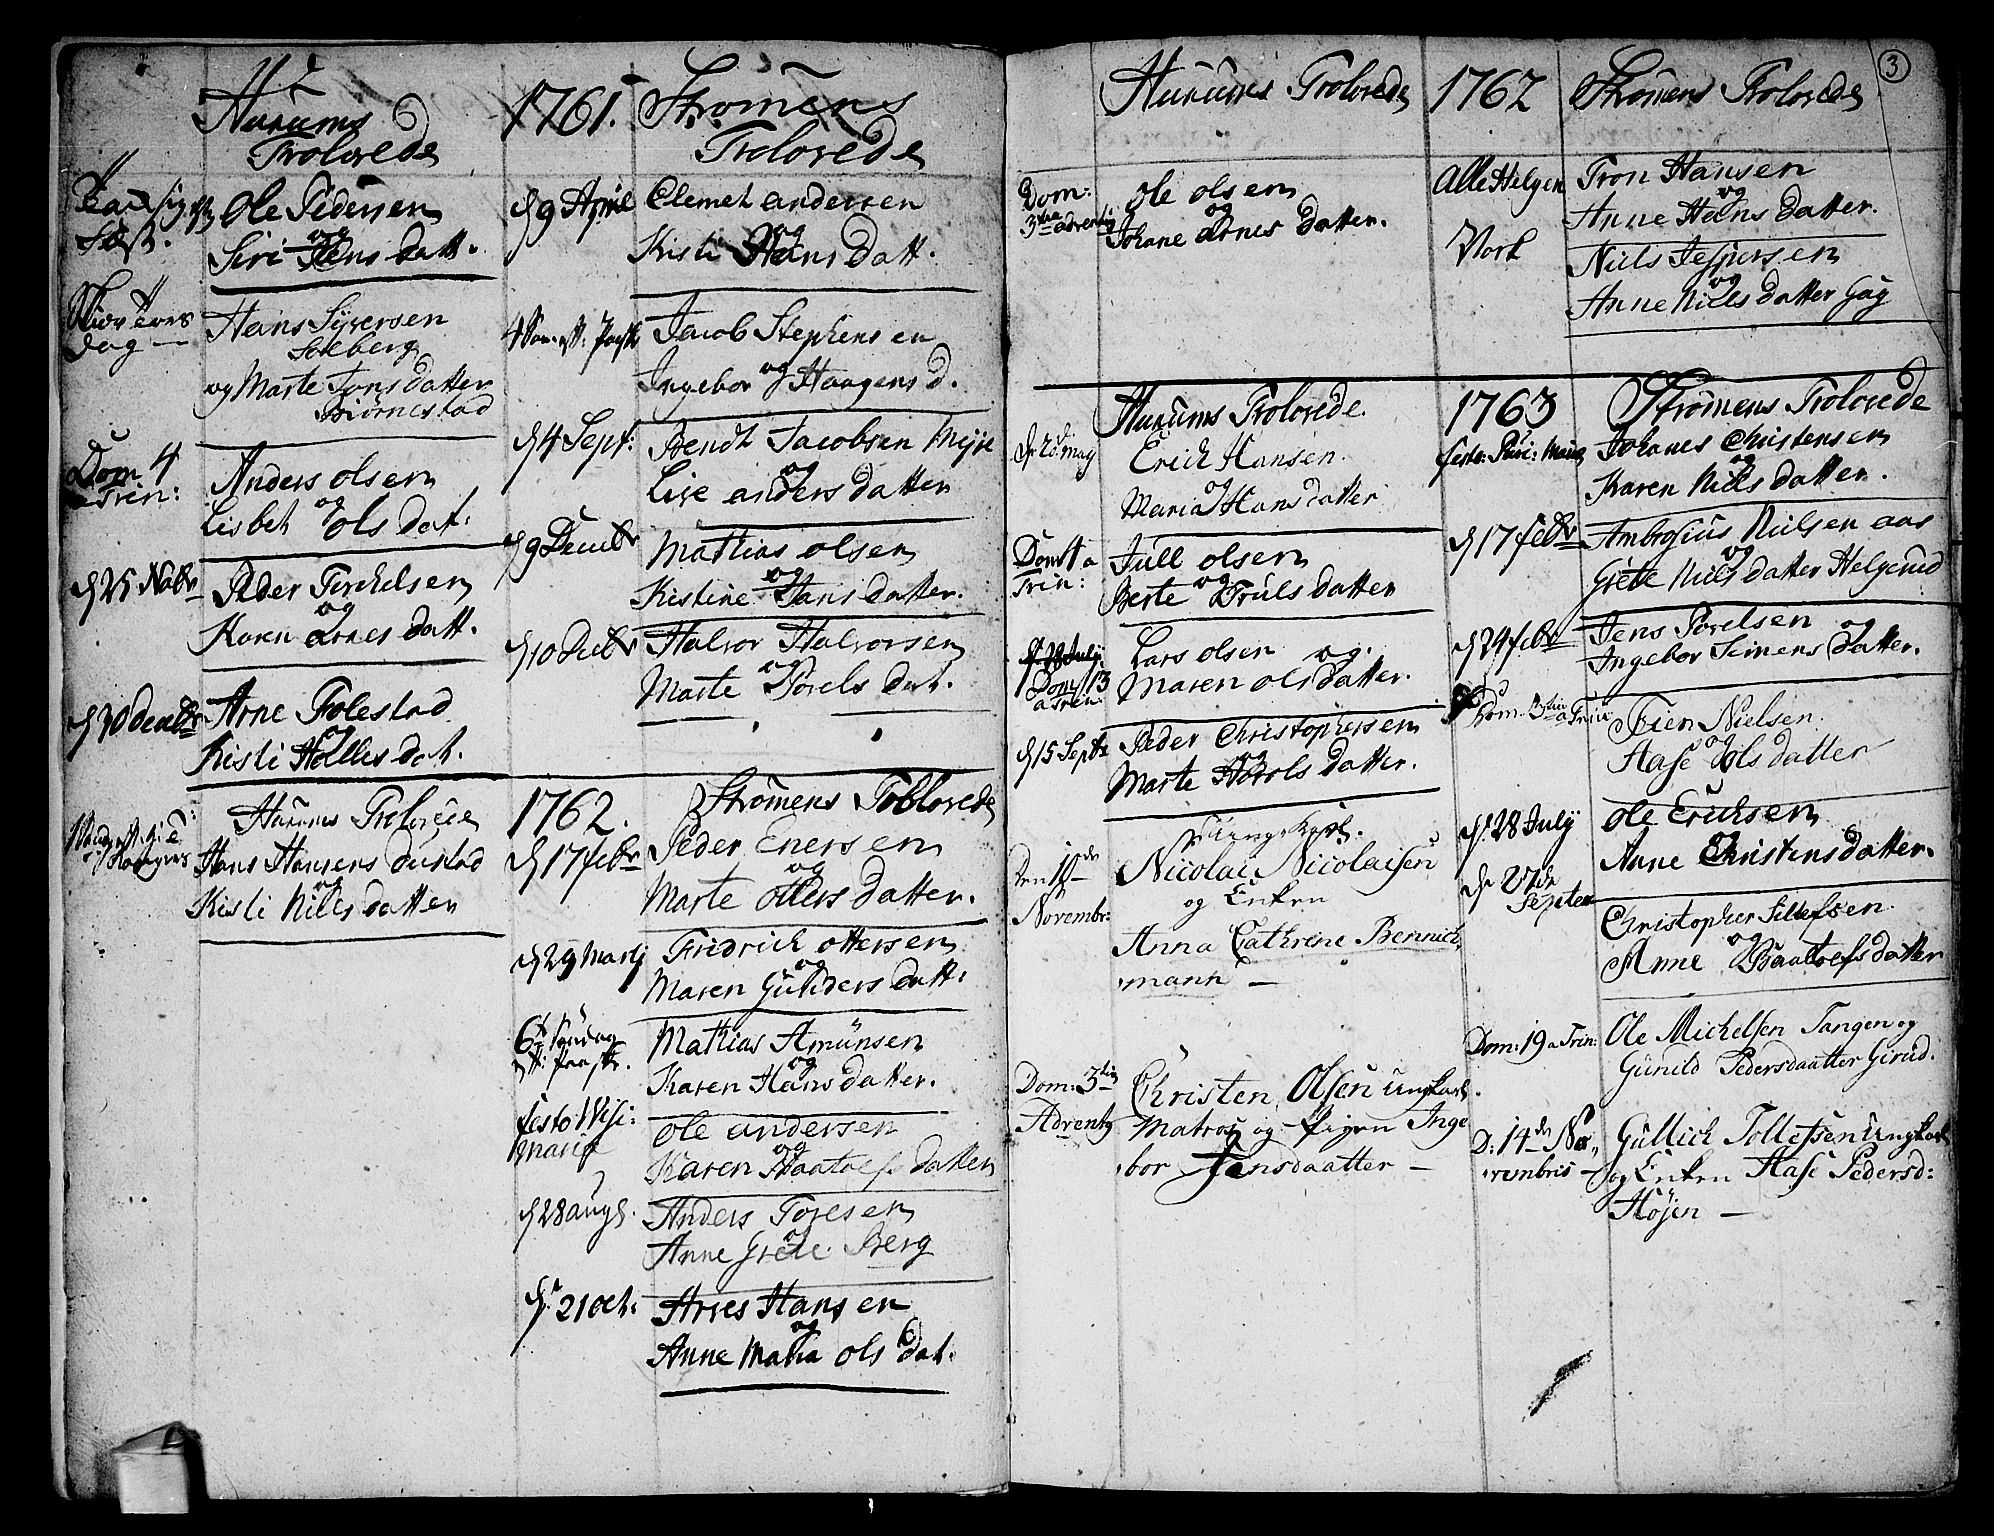 Hurums
Trolovede
Ole Pedersen
og
Siri Jens datt.
dag
Hans Syversen
Solberg
og Marte Jons datter
Biørnestad
Dom 4
a Trin:
Anders olsen
og
Lisbet ols dat:
d 25 Nobr
Peder Terchelsen
og
Karen Arnes datt.
d 30 decembr
Arne Folestad
og
Kisti Holles dat.
Hurums Trolovede
Hans Hansen
Kisti Niels datter
1761.
Strømens
Trolovede
d 9 April
Clemet andersen
og
Kisti Hans datt.
4 Søn. eft: Paaske
Jacob Stephensen
og
Ingebor Haagens d.
d 4 Sept:
Bendt Jacobsen
og
Lise anders datter
d 9 Decembr
Mathias olsen
og
Kistine Hans datter.
d 10 Decbr
Halvor Halvorsen
og
Marte Porels dat.
1762.
Strømens Tolovede
d 17 febr
Peder Enersen
og
Marte otters datter.
d 29 Martj
Fridrich ottersen
og
Maren Gunders datt:
6te Søndag
eft: paaske.
Mathias Amünsen
og
Karen Hans datter.
festo Visi:
Mariæ
ole andersen
og
Karen datter
d 28 augs.
Anders Toresen
og
Anne Grete Berg
d. 21 oct.
Arves Hansen
og
Anne Maria ols dat.
3
Hurums Trolovede
Dom:
3tia adventg
ole olsen
og
Johane Arnes datter.
1762
Strømens Trolovede
Alle Helgen
Tron Hansen
og
Anne Hans datter.
Niels Jespersen
og
Anne Niels datter
Hurums Trolovede.
d. 20. may
Erich Hansen.
og
Maria Hans datter
Dom 1 a
Trin:
Jull olsen
og
Berte Truls datter
Dom 13
a Trin:
Lars olsen og
Maren ols datter.
d 15 Septr
Peder Christophersen
og
Marte datter.
Den 10de
Novembr:
Ungekarl.
Nicolai Nicolaisen
og Enken
Anna Cathrine Bennich
mann —
Dom: 3tia
Adventg
Christen Olsen Ungkarl.
Matros og Pigen Inge
bor Jensdaatter —
1763
Strømens Trolovede
festo Puri: Mariæ
Johanes Christensen
og
Karen Niels datter.
d 17 febr
Ambrosius Nielsen aas
og
Grete Niels datter Helgerud
d 24 febr
Jens Porelsen og
Ingebor Simens datter.
Dom. 3tia a Trin
Fien Nielsen.
og
Aase Ols datter
d. 28 July
ole Ericksen
Anne Christens datter.
d. 27de
Septem
Christopher Tillefsen.
og
Anne datter
Dom: 19 a Trin:
Ole Michelsen Tangen og
Gunild Pedersdaatter Girud.
D: 14de No-
vembris —
Gullich Tollefsen Ungkarl
og Enken Aase Pedersd:
Høien —